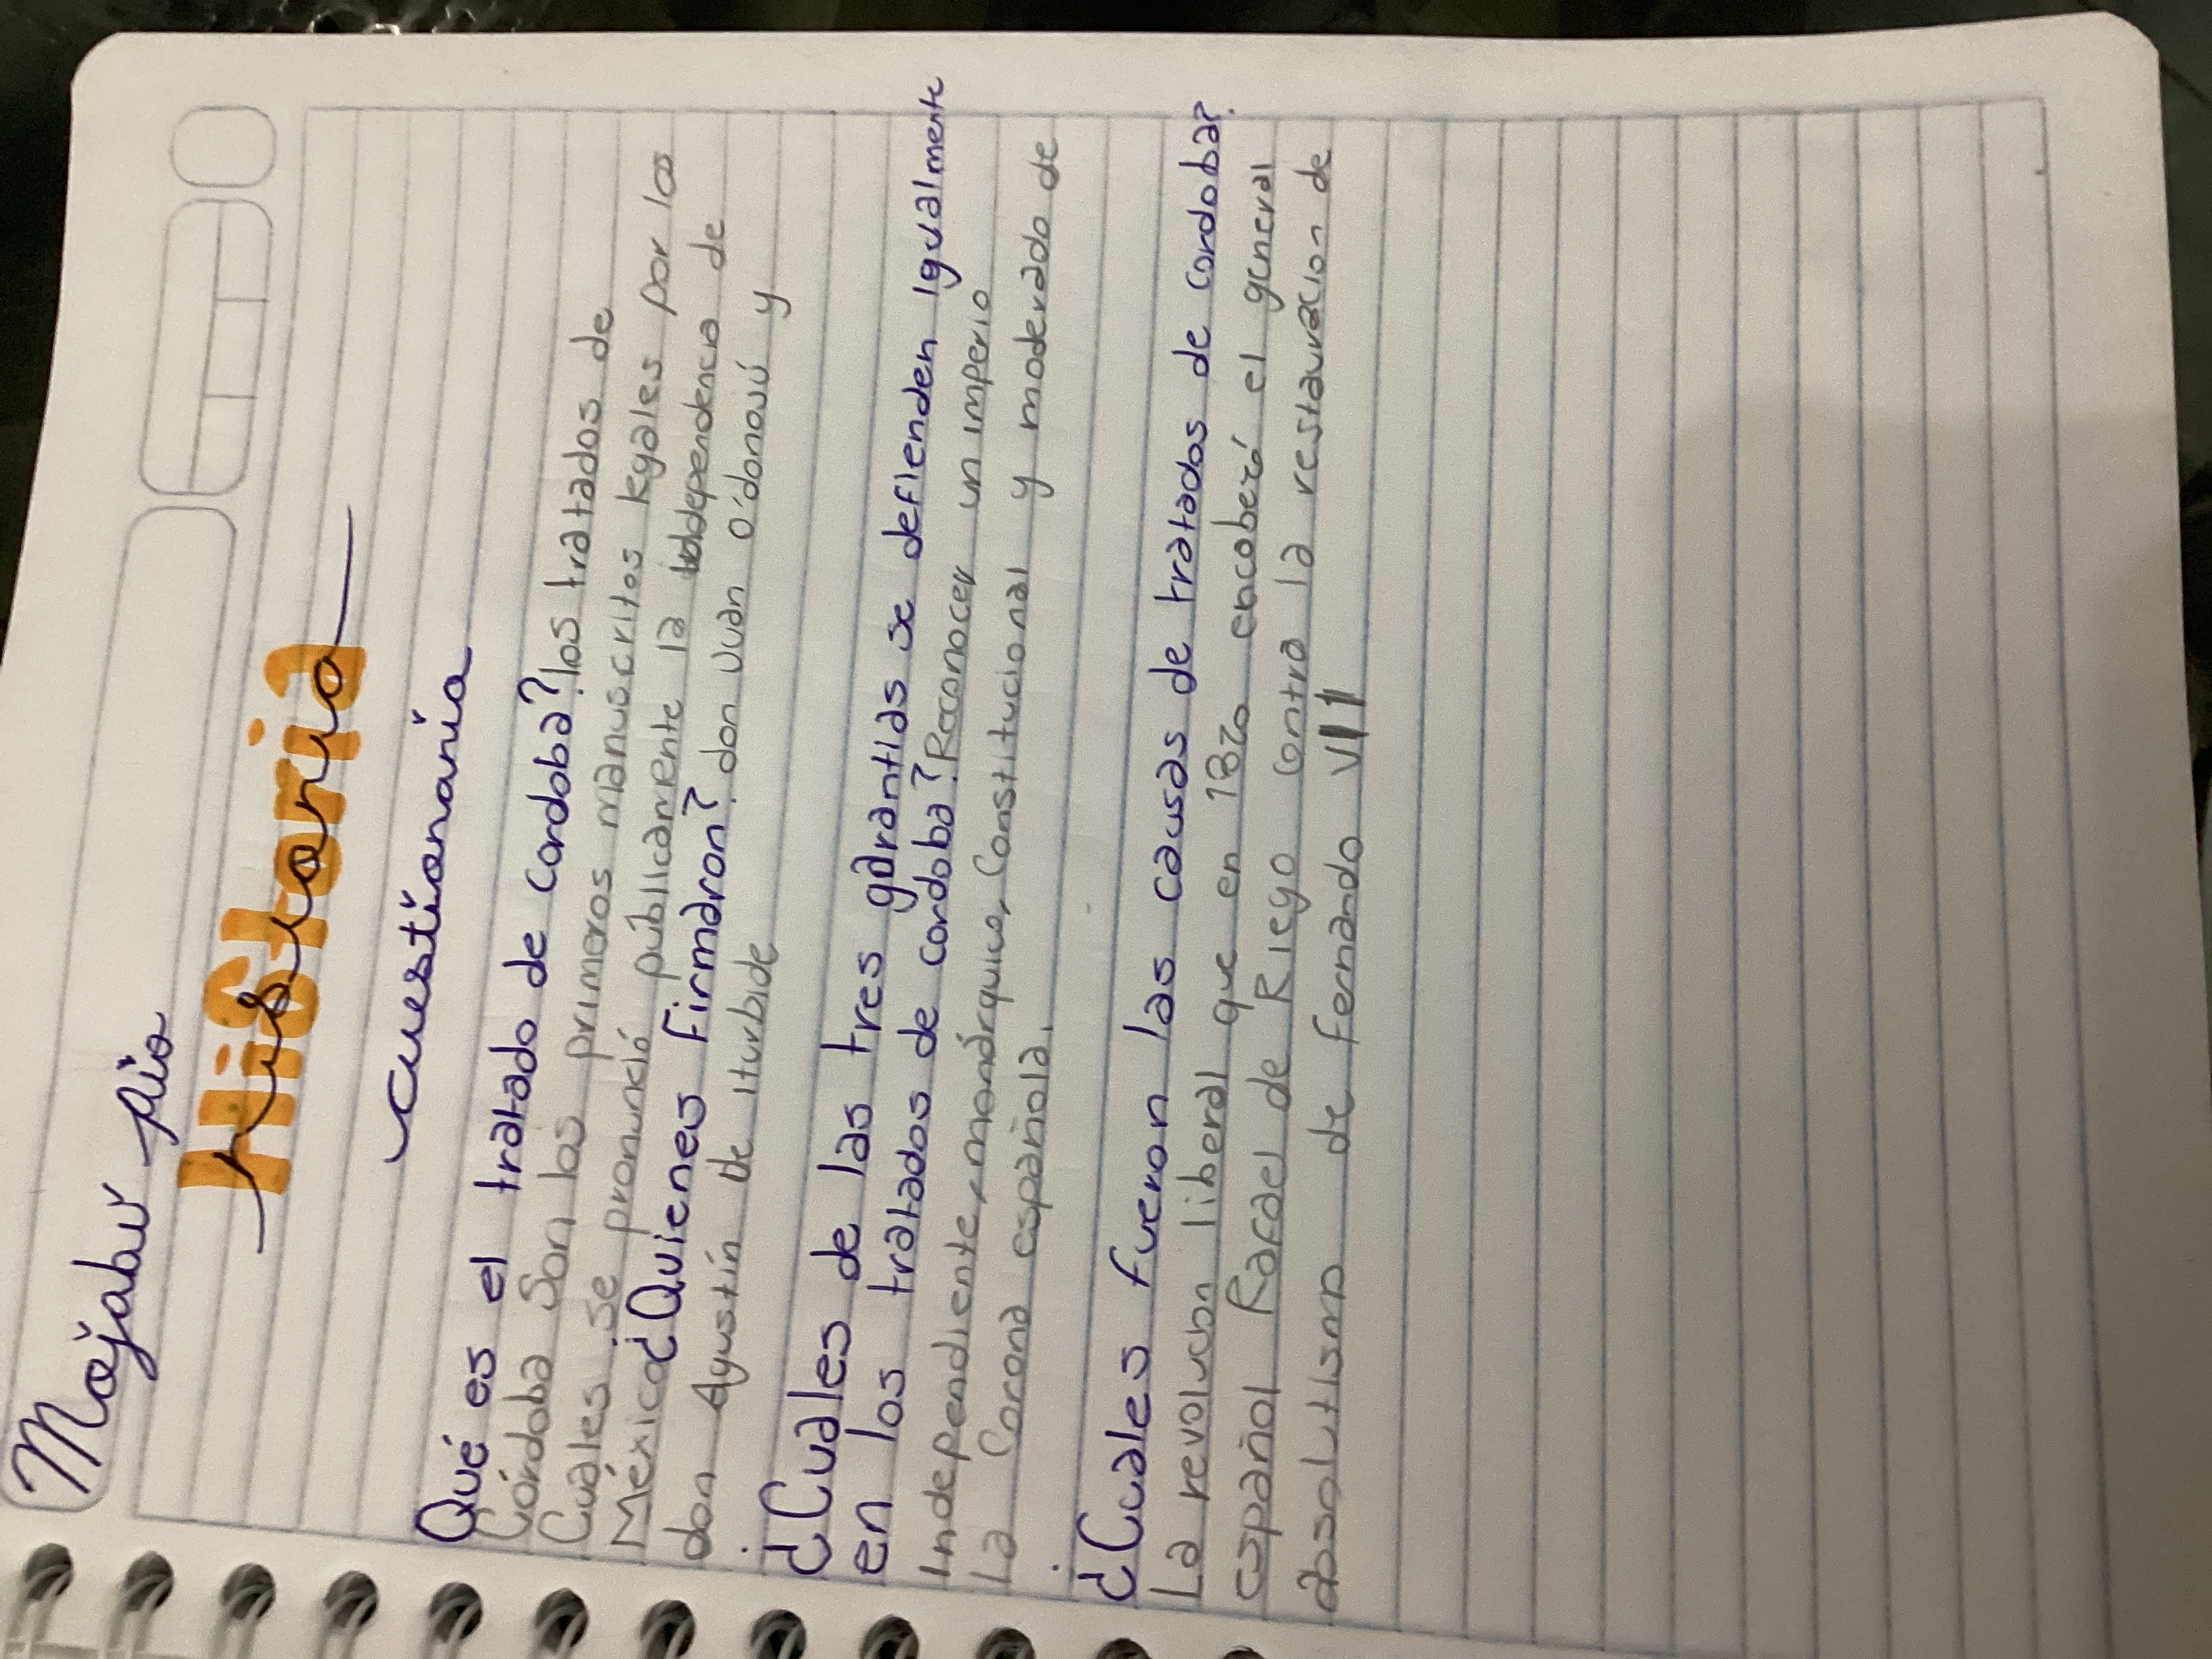 Mojabw pio
Historia
historia
cuestionario
Qué es el tratado de cordoba? los tratados de
Córdoba Son los primeros manuscritos legales por los
Cuales se pronunció publicamente la independencia de
México ¿Quienes firmaron? don Juan O'donojú y
don Agustín de Iturbide
¿Cuales de las tres garantias se defienden igualmente
en los tratados de cordoba? Reconocer un imperio
Independiente, monárquico, Constitucional y moderado de
la Corona española.
¿Cuales fueron las causas de tratados de cordoba?
La revolucion liberal que en 1820 encobezó el general
español Rafael de Riego contra la restauracion de
absolutismo de fernando VII